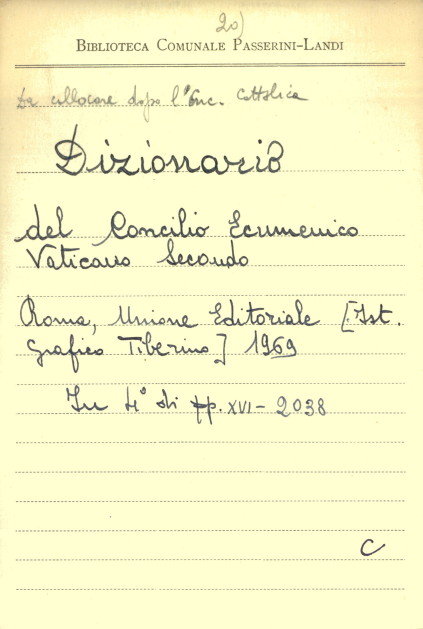 20)
BIBLIOTECA COMUNALE PASSERINI-LANDI
Da collocare dopo l'Enc. Cattolica
Dizionario
del Concilio Ecumenico
Vaticano Secondo
Roma, Unione Editoriale [Ist.
Grafico Tiberino] 1969
In 4° di pp. XVI - 2038
C